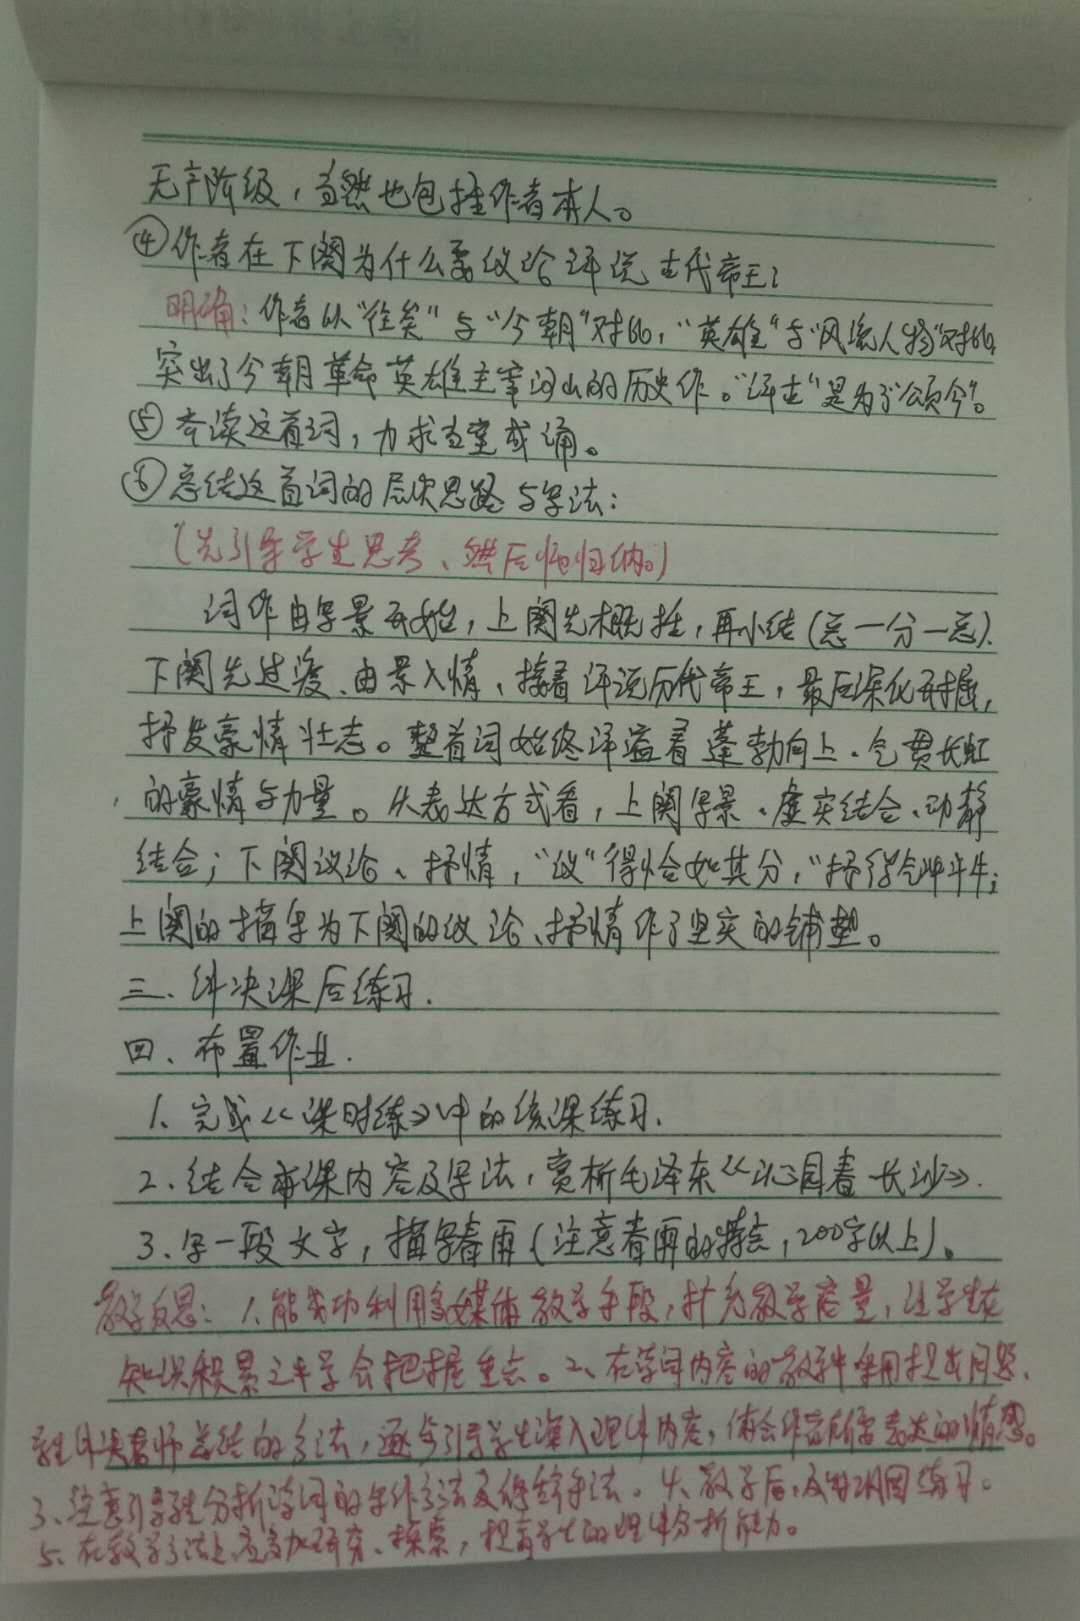 无产阶级，当然也包括作者本人。
④作者在下阕为什么要议论评说古代帝王？
明确：作者以“往矣”与“今朝”对比，“英雄”与“风流人物”对比
突出了今朝革命英雄主宰河山的历史作。“评古”是为了“颂今”。
⑤齐读这首词，力求当堂成诵。
⑥总结这首词的层次思路与写法：
（先引导学生思考、然后归纳。）
词作由写景开始，上阕先概括，再小结（总一分一总）.
下阕先过渡、由景入情，接着评说历代帝王，最后深化开掘，
抒发豪情壮志。整首词始终洋溢着蓬勃向上、气贯长虹
的豪情与力量。从表达方式看，上阕写景、虚实结合、动静
结合；下阕议论、抒情，“议”得恰如其分，“抒得气冲斗牛；
上阕的描写为下阕的议论、抒情作了坚实的铺垫。
三、解决课后练习.
四、布置作业.
1、完成《课时练》中的该课练习.
2、结合本课内容及写法，赏析毛泽东《沁园春 长沙》.
3、写一段文字，描写春雨（注意春雨的特点，200字以上）。
教学反思：1、能成功利用多媒体教学手段，扩充教学容量，让学生在
知识积累之中学会把握重点。2、在诗词内容的教学中采用提出问题、
学生解决老师总结的方法，逐步引导学生深入理解内容，体会作者所要表达的情感。
3、注意引导学生分析诗词的写作方法及修辞手法。4、教学后，及时巩固练习。
5、在教学方法上应多加研究、探索，提高学生的理解分析能力。